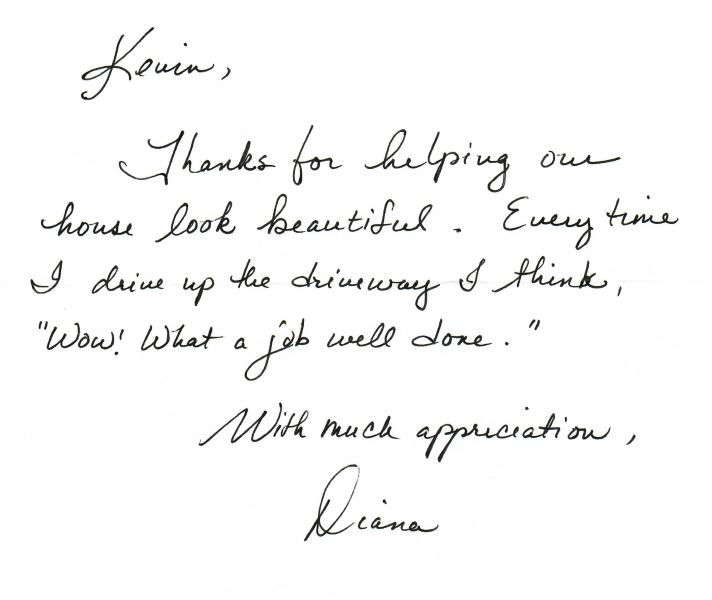 Kevin,
Thanks for helping our
house look beautiful. Every time
I drive up the driveway I think,
"Wow! What a job well done."
With much appriciation,
Diana